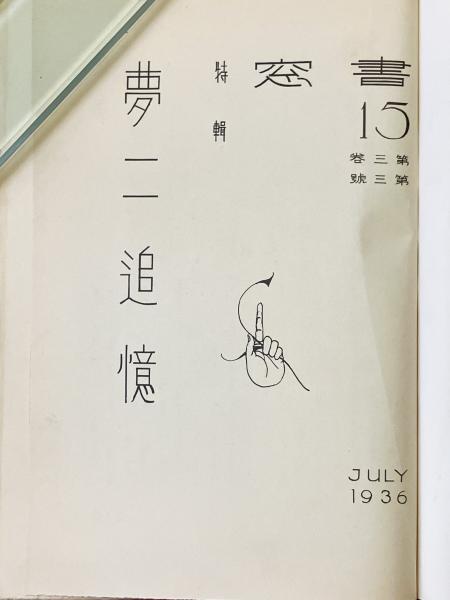 書窓
15
第三巻
第三號
特輯
夢二追憶
JULY
1936